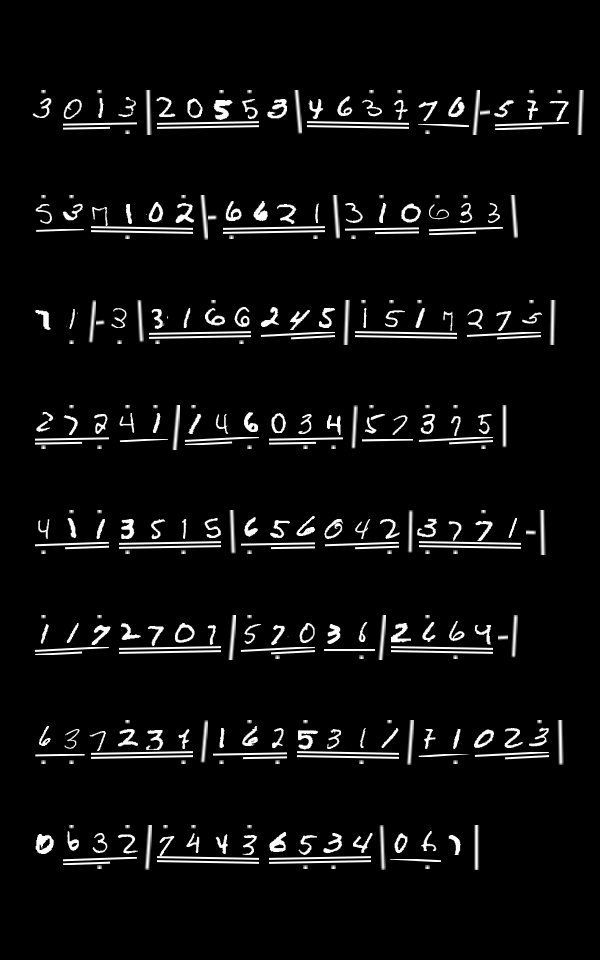 3013|20553|463770|-577
537102|-6621|310633
71|-3|3166245|1517275
27241|146034|57375
4113515|656042|3771-
1172707|57036|2664-
637237|1625311|71023
0632|74436534|067